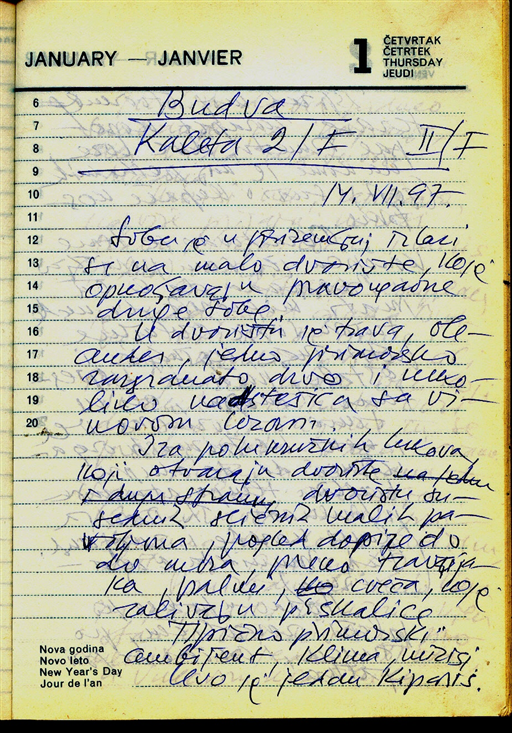 JANUARY — JANVIER
1
ČETVRTAK
ČETRTEK
THURSDAY
JEUDI
6 Budva
7
8 Kaleta 2/I II/I
9
10 14. VII. 97.
11
12 Soba je u prizemnoj izlazi
13 se na malo dvorište, koje
14 opkoljavaju pravougaone
15 druge sobe.
16 U dvorištu je trava, ole-
17 ander, jedno primorsko
18 razgranato drvo i neko-
19 liko nadstrešica sa vi-
20 novom lozom.
Iza polukružnih lukova
koji otvaraju dvorište na jednu
i drugu stranu, dvorištu su-
sednih sličnih malih pa-
viljona pogled dopire do
do mora, preko travnja-
ka, palmi, cveća, koje
zalivaju prskalice
Tipično primorski"
ambijent, klima, mirisi
Evo je jedan kiparis.
Nova godina
Novo leto
New Year's Day
Jour de l'an